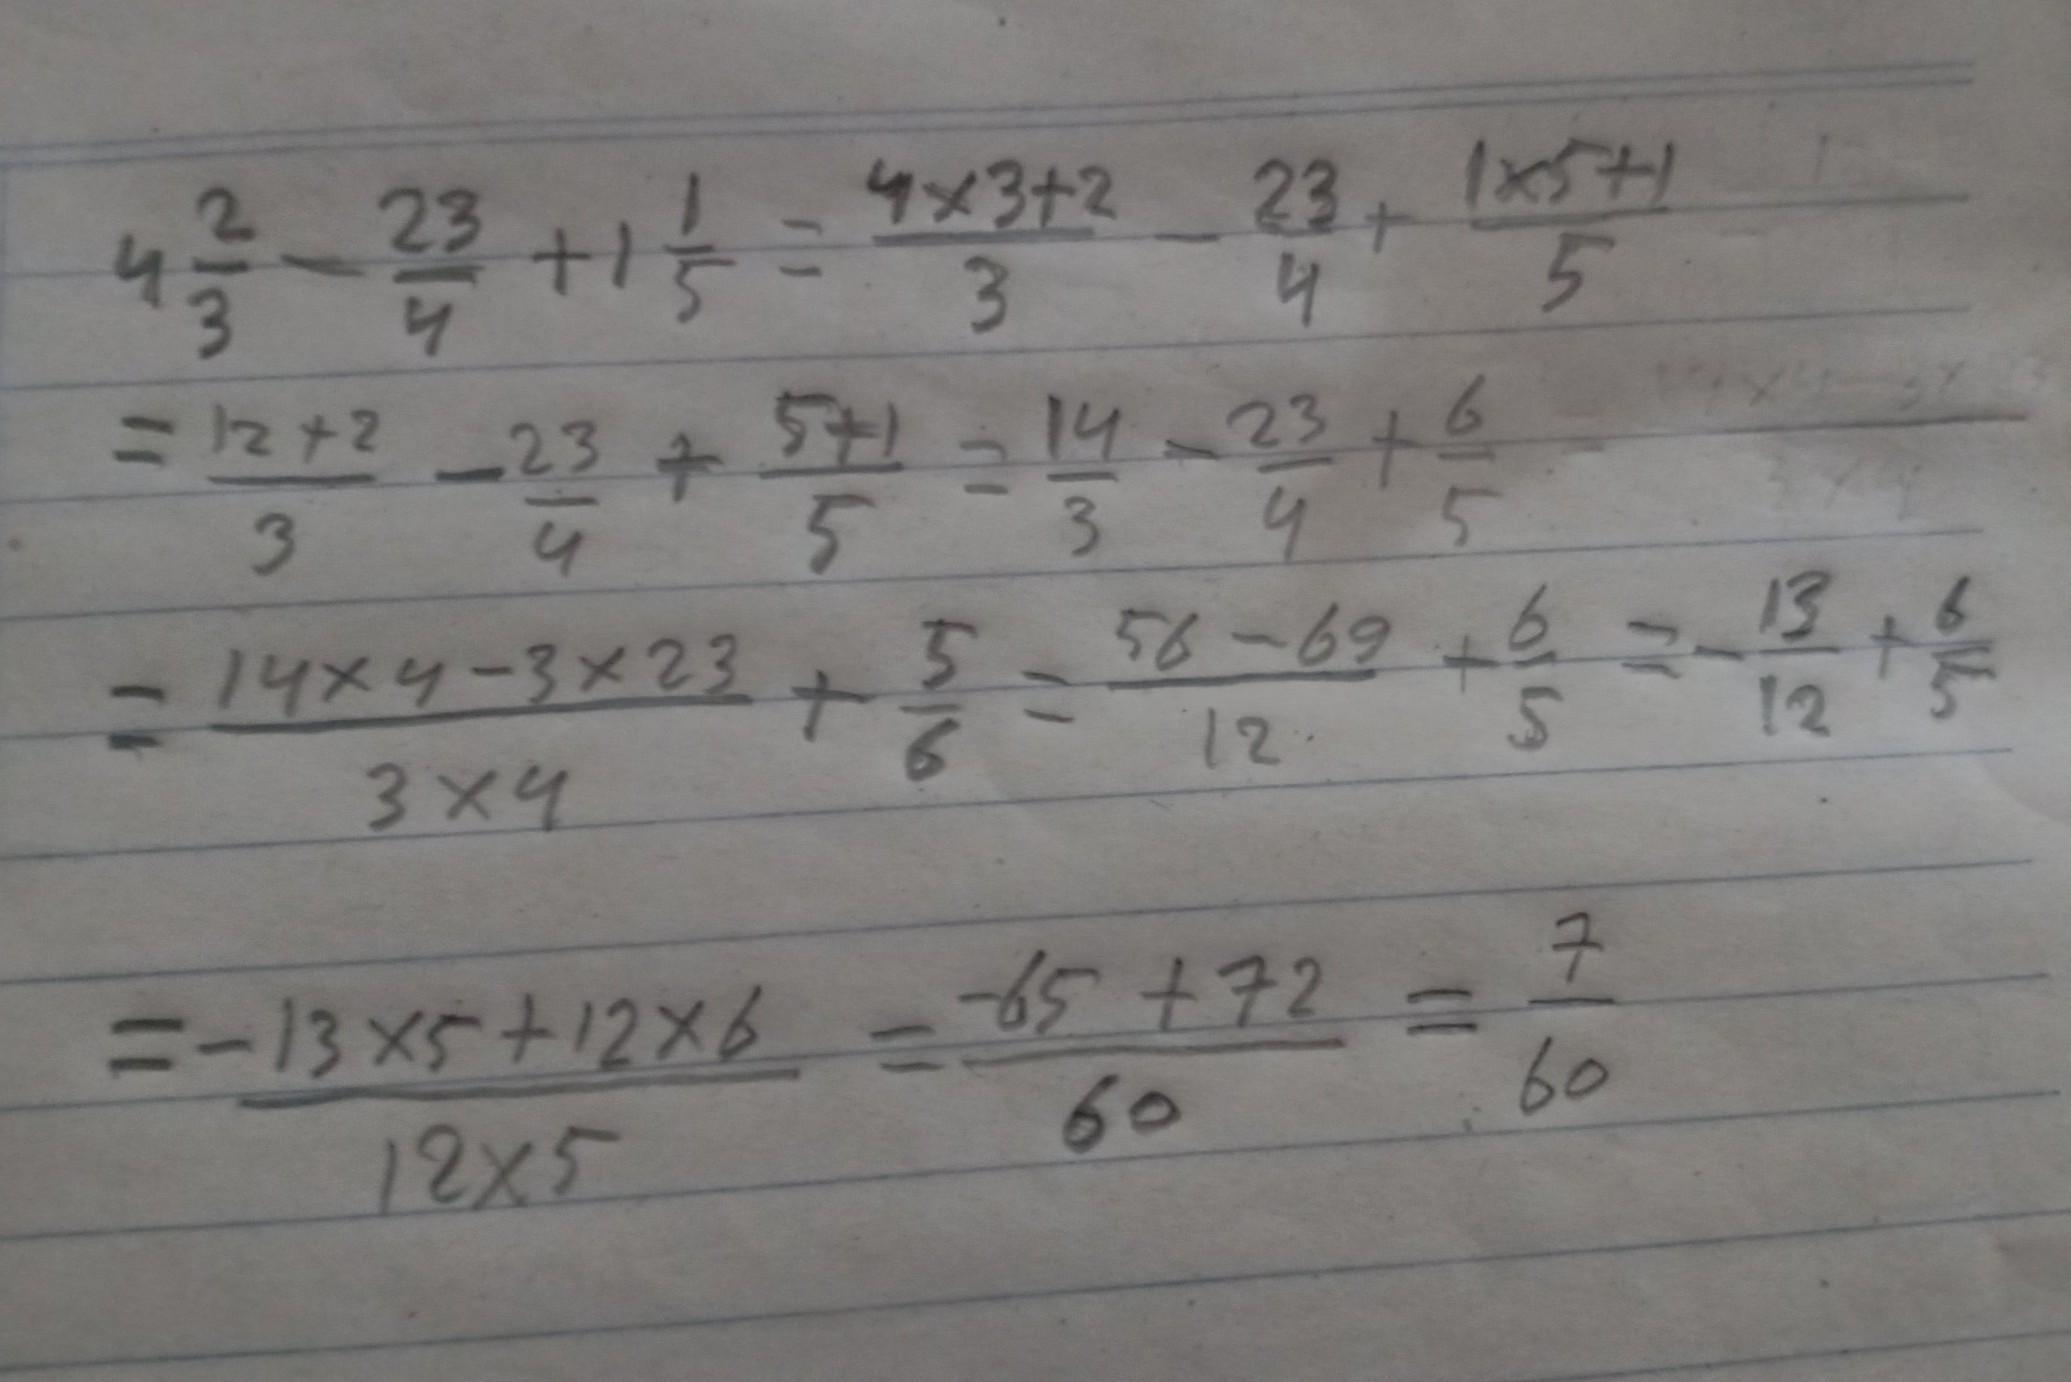 4 2/3 - 23/4 + 1 1/5 = (4×3+2)/3 - 23/4 + (1×5+1)/5
= (12+2)/3 - 23/4 + (5+1)/5 = 14/3 - 23/4 + 6/5
= (14×4-3×23)/(3×4) + 5/6 = (56-69)/12 + 6/5 = -13/12 + 6/5
= (-13×5+12×6)/(12×5) = (-65+72)/60 = 7/60